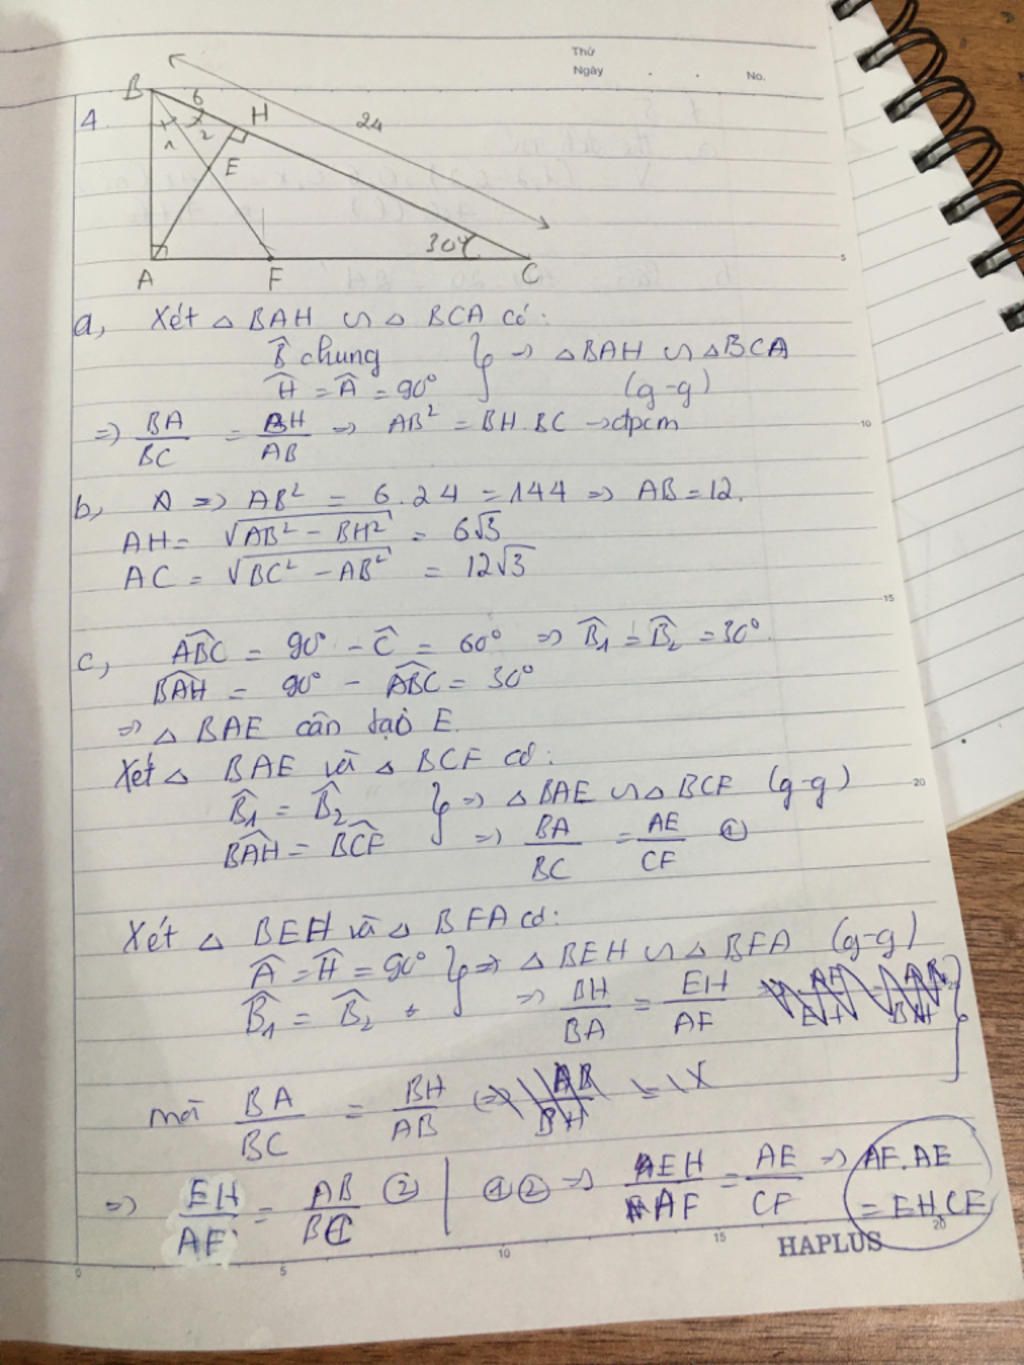 Thứ
Ngày . . No.
4
B 6 H 24
1 2 E
A F 30° C
5
a, Xét △ BAH ∽ △ BCA có:
B̂ chung } => △BAH ∽ △BCA
Ĥ = Â = 90° (g-g)
=> BA/BC = BH/AB => AB² = BH.BC → đpcm
10
b, A => AB² = 6.24 = 144 => AB = 12.
AH = √(AB² - BH²) = 6√3
AC = √(BC² - AB²) = 12√3
15
c, ABC = 90° - Ĉ = 60° => B̂1 = B̂2 = 30°.
BAH = 90° - ABC = 30°
=> △ BAE cân tại E.
Xét △ BAE và △ BCF có:
B̂1 = B̂2 } => △BAE ∽ △ BCF (g-g)
20
BAH = BCF => BA/BC = AE/CF ①
Xét △ BEH và △ BFA có:
Â = Ĥ = 90° } => △BEH ∽ △ BFA (g-g)
B̂1 = B̂2 => BH/BA = EH/AF
mà BA/BC = BH/AB
=> EH/AF = AB/BC ② | ①② => EH/AF = AE/CF => AF.AE
= EH.CF
0 5 10 15 20
HAPLUS